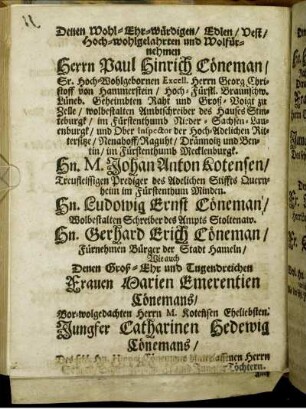 Denen Wohl-Ehr-würdigen/ Edlen/ Vest/
Hoch-wohlgelahrten und Wolfür-
nehmen
Herrn Paul Hinrich Cöneman/
Sr. Hoch-Wohlgebornen Excell. Herrn Georg Chri-
stoff von Hammerstein/ Hoch-Fürstl. Braunschw.
Lüneb. Geheimbten Raht und Groß-Voigt zu
Zelle/ wolbestalten Ambtschreiber des Hauses
im Fürstenthum Nieder-Sachsen-Lau-
enburg/ und Ober Inspector der Hoch-Adelichen Rit-
tersitze/
tin/ im Fürstenthumb Mecklenburg.
Hn. M. Johan Anton Kotensen/
Treufleissigen Prediger des Adelichen Stiffts Quern-
heim im Fürstenthum Minden.
Hn. Ludowig Ernst Cöneman/
Wolbestalten Schreiber des Ampts Stoltenaw.
Hn. Gerhard Erich Cöneman/
Fürnehmen Bürger der Stadt Hameln/
Wie auch
Denen Groß-Ehr und Tugendreichen
Frauen Marien Emerentien
Cönemans/
Vor-wolgedachten Herrn M. Kotensen Eheliebsten.
Jungfer Catharinen Hedewig
Cönemans/
Des sehl. Hn. Herrn
Töchtern.